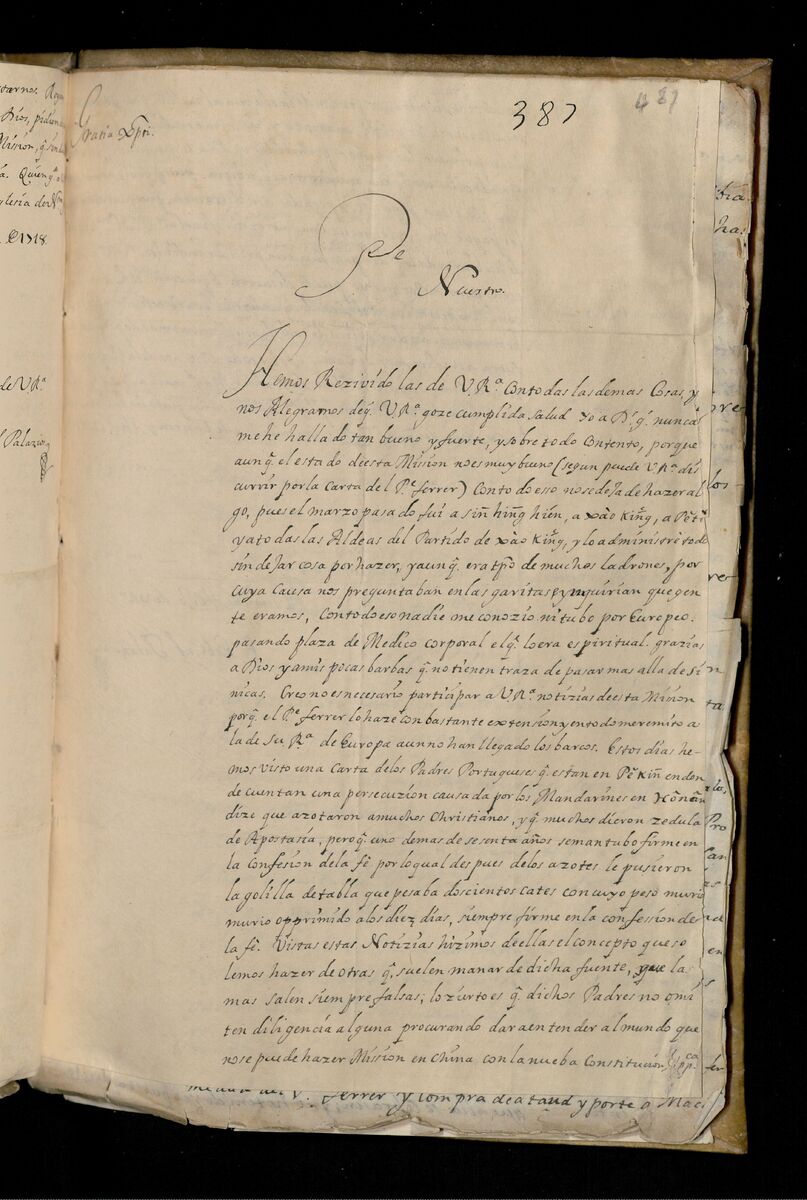 ternos. Rog
Dios, pidien
Mision, q̃ sin
a. Quien q̃
glesia de N
1718.
de V.R.ª
Palazio
Gracia Xp̃ri.
387
487
P.e
Nuestro.
Hemos Rezivido las de V.R.ª Con todas las demas Cosas, y
nos Alegramos de q̃. V.R.ª goze cumplida salud yo a D.s g.s nunca
me he hallado tan bueno y fuerte, y sobre todo Contento, porque
aunq̃. el estado de esta Mision no es muy buno (segun puede V.R.ª dis
currir por la Carta del P.e ferrer) Con todo esso no se deja de hazer al
go, pues el marzo pasado fui a sin̄ hin̄g hien, a xào Kin̄g, a Pĕ ti
y a todas las Aldeas del Partido de xào Kin̄g, y lo administrè todo
sin dejar cosa por hazer, y aunq̃. era tp̃o de muchos ladrones, por
cuya Causa nos preguntaban en las garitas e ynquirian que gen
te eramos, Con todo eso nadie me conozio, ni tubo por Europeo.
pasando plaza de Medico corporal el q̃. lo era espiritual. grazias
a Dios y a mis pocas barbas q̃. no tienen traza de pasar mas alla de Si
nicas. Creo no es necesario participar a V.R.ª notizias de esta Mision
porq̃. el P.e ferrer lo haze con bastante extension y en todo me remito a
la de Su R.ª de Europa aun no han llegado los barcos. Estos dias he
mos visto una Carta de los Padres Portugueses q̃. estan en Pĕ Kin̄ en don
de cuentan una persecuzion causada por los Mandarines en Hô nân
dize que azotaron a muchos Christianos, y q̃. muchos dieron zedula
de Apostasia, pero q̃. uno de mas de sesenta años se mantubo firme en
la Confesion de la fê por lo qual despues de los azotes le pusieron
la golilla de tabla que pesaba doscientos Cates con cuyo peso murio
murio opprimido a los diez dias, siempre firme en la confession de
la fê. Vistas estas Notizias hizimos de ellas el concepto que so
lemos hazer de otras q̃. suelen manar de dicha fuente, que las
mas salen siempre falsas; lo zierto es q̃. dichos Padres no omi
ten diligencia alguna procurando dar a entender al mundo que
no se puede hazer Mision en China con la nueba Constitucion App.ca
ferrer y compra de ataud y porte a Maca